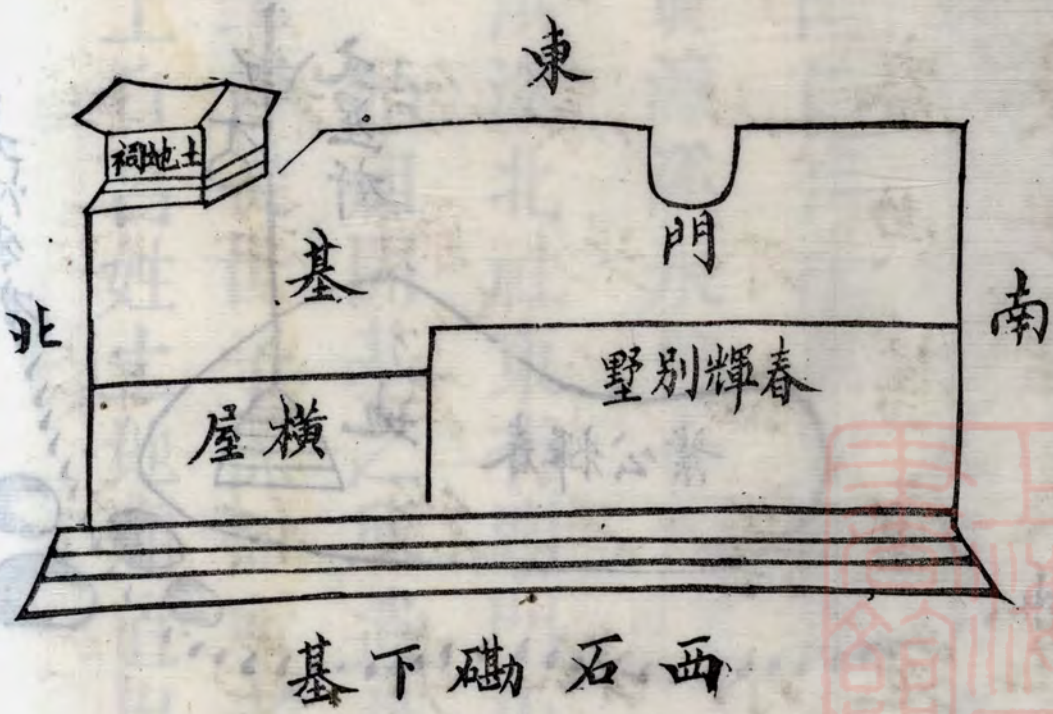 東
土地祠
門
基
南
北
春輝別墅
橫屋
西石磡下基